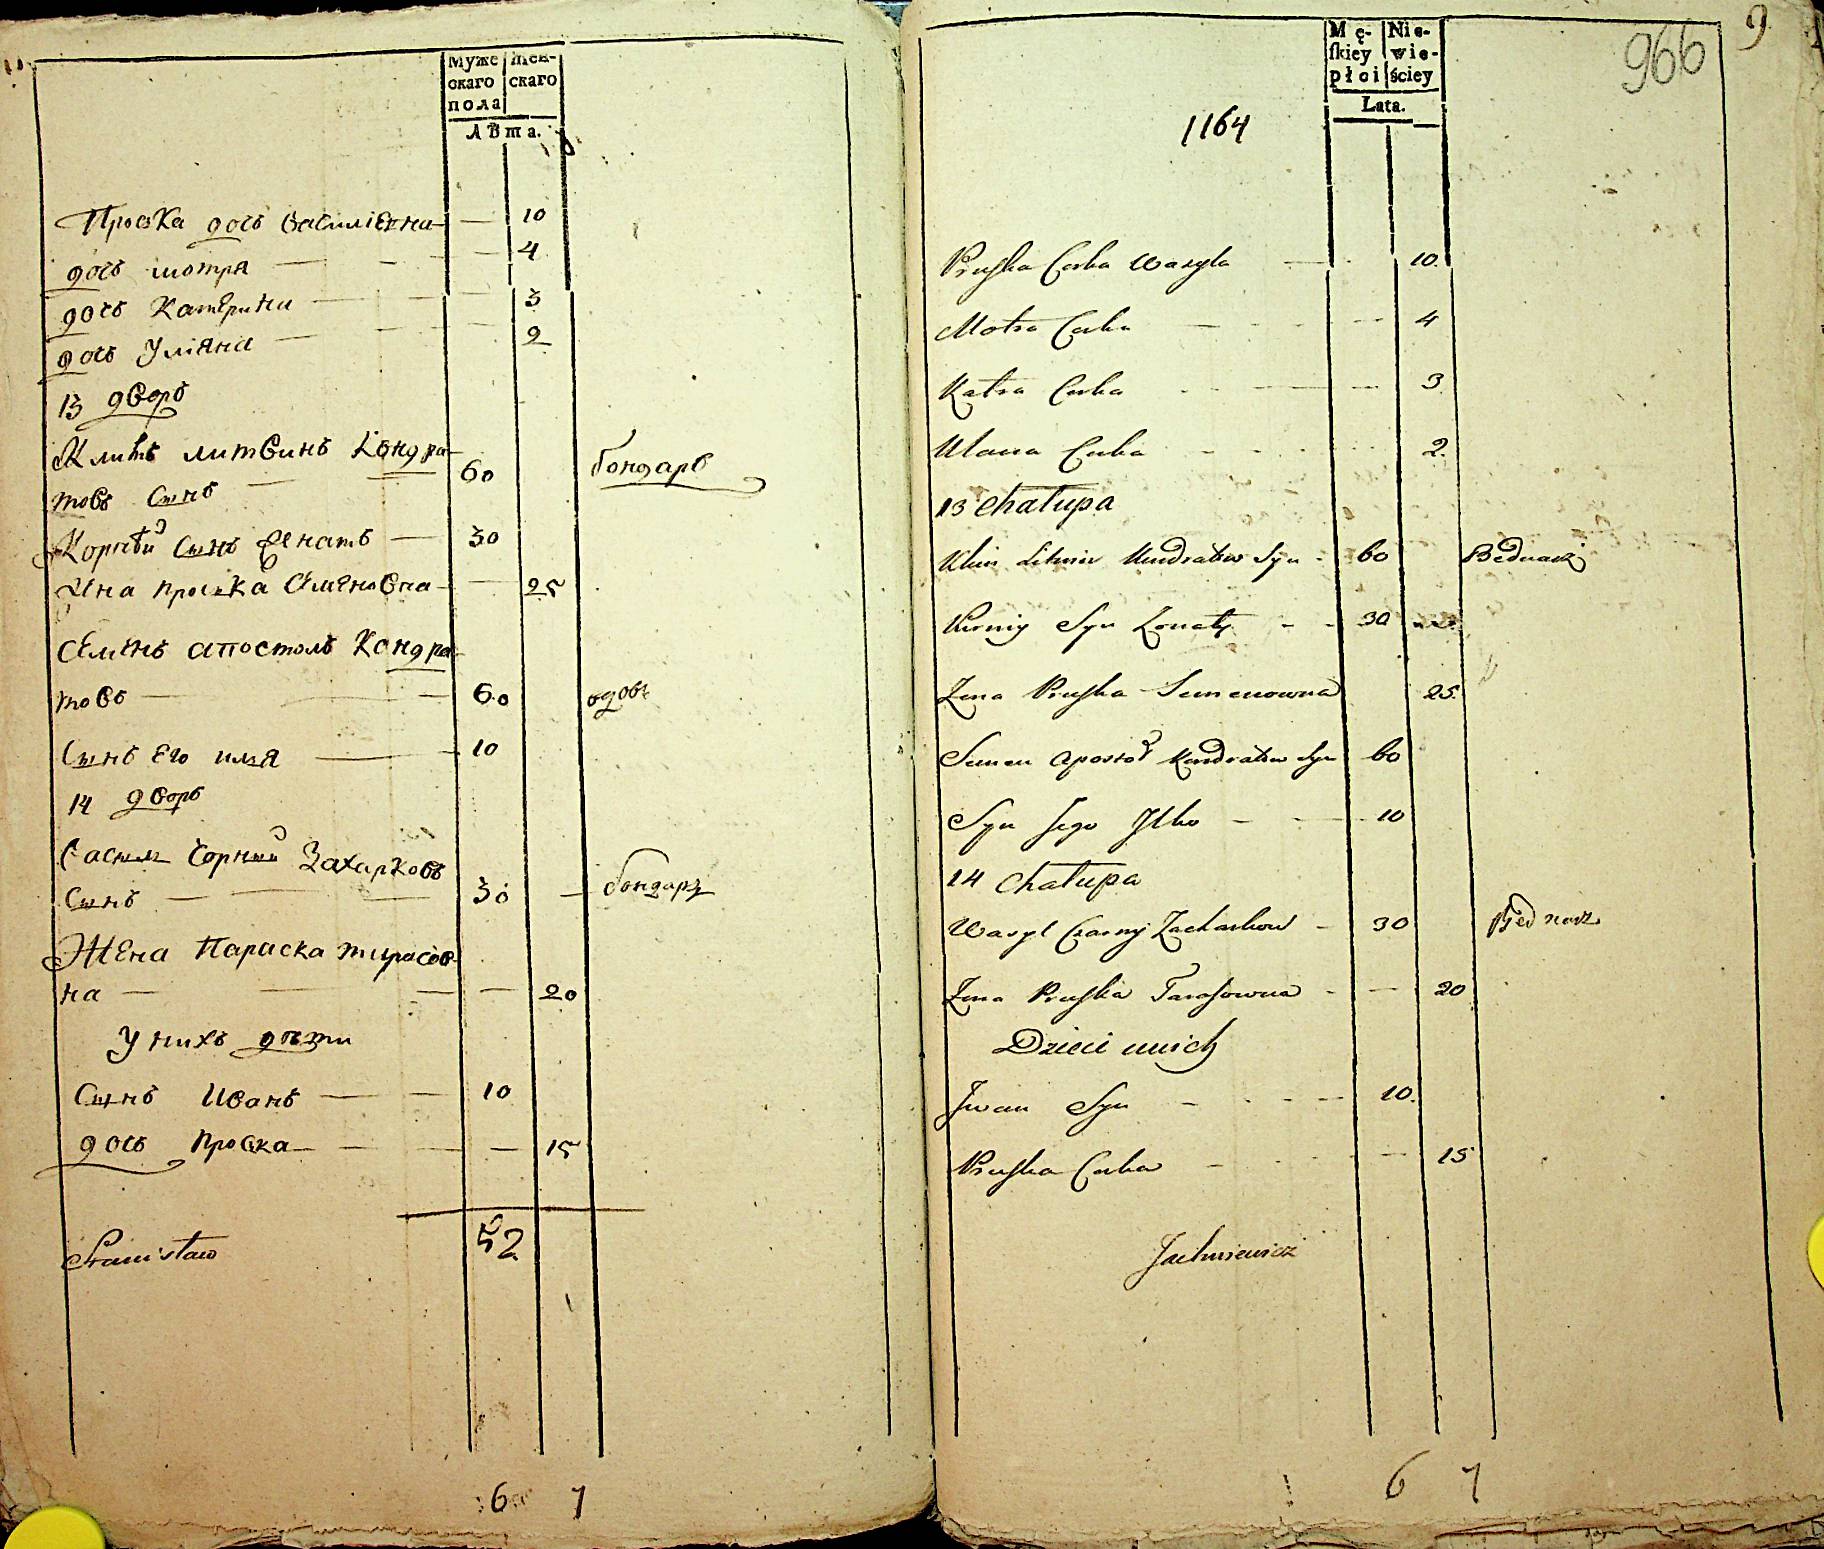 Муже скаго пола
Жен- скаго
Лѣта.
Проска дочь Василіевна — 10
дочь мотря — 4
дочь Катерина — 3
дочь Уліяна — 2
13 дворъ
Климъ литвинъ Кондра- 60 бондаръ
товъ сынъ
Корнѣй сынъ Ігнатъ — 30
Жена проска Семеновна — 25
Семенъ апостолъ Кондра-
товъ — 60 вдовъ
Сынъ Его илля — 10
14 дворъ
Василь Чорный Захарковъ
Сынъ — 30 — бондаръ
Жена Параска тирасов-
на — 20
У нихъ дѣти
Сынъ Иванъ — 10
дочь проска — 15
52
Stanisław
6 7
9
966
Mę- skiey płci
Nie- wie- ściey
Lata.
1164
Pruska Corka Wasyla — 10.
Motra Corka — 4
Katra Corka — 3
Ulana Corka — 2.
13 Chałupa
Klim Litwin Kondratow Syn - 60 Bednarz
Korniy Syn — 30
Zona Pruska Semenowna 25.
Semen Apostoł Kondratow Syn 60
Syn Jego Ilko — 10
14 Chałupa
Wasyl Czarny Zacharkow — 30 Bednarz
Zona Pruska Tarasowna — 20
Dzieci u nich
Jwan Syn — 10.
Pruska Corka — 15
Jachniewicz
6 7